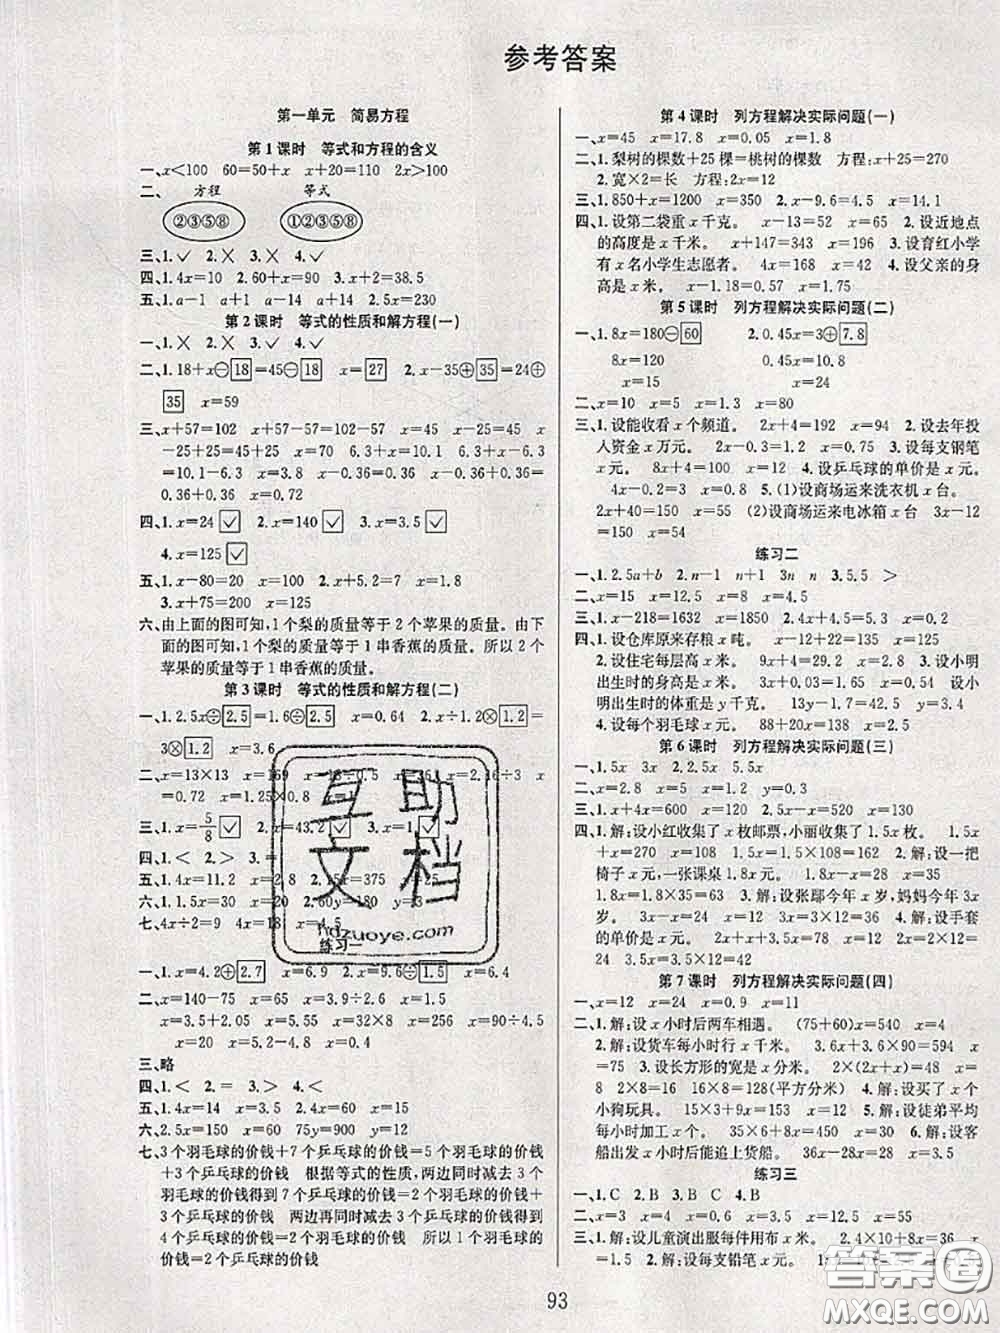 参考答案
第一单元 简易方程
第1课时 等式和方程的含义
一、x<100 60=50+x x+20=110 2x>100
二、 方程 等式
②③⑤⑧ ①②③⑤⑧
三、1.✓ 2.✗ 3.✗ 4.✓
四、1.4x=10 2.60+x=80 3.x+2=38.5
五、1.a-1 a+1 a-14 a+14 2.5x=230
第2课时 等式的性质和解方程(一)
一、1.✗ 2.✗ 3.✓ 4.✓
二、1.18+x⊖18=45⊖18 x=27 2.x-35⊕35=24⊕
35 x=59
三、x+57=102 x+57-57=102-57 x=45 x-25=45 x
-25+25=45+25 x=70 6.3+x=10 6.3+x-6.3
=10-6.3 x=3.8 x-0.36=0.36 x-0.36+0.36=
0.36+0.36 x=0.72
四、1.x=24 ✓ 2.x=140 ✓ 3.x=3.5 ✓
4.x=125 ✓
五、1.x-80=20 x=100 2.x+5=6.8 x=1.8
3.x+75=200 x=125
六、由上面的图可知,1个梨的质量等于2个苹果的质量。由下
面的图可知,1个梨的质量等于1串香蕉的质量。所以2个
苹果的质量等于1串香蕉的质量。
第3课时 等式的性质和解方程(二)
一、1.2.5x÷2.5=1.6÷2.5 x=0.64 2.x÷1.2⊗1.2=
3⊗1.2 x=3.6
二、x=13×13 x=169 x=0.5 x=2.16÷3 x
=0.72 x=1.25×0.8 x=1
三、1.x=5/8 ✓ 2.x=43.2 ✓ 3.x=1 ✓
四、1.< 2.> 3.= 4.<
五、1.4x=11.2 x=2.8 2.15x=375 x=25
六、1.1.5x=30 x=20 2.60y=180 y=3
七、4x=8 x=2 4x=18 x=4.5
练习一
一、1.x=4.2⊕2.7 x=6.9 2.x=6.9 1.5 x=4.6
二、x=140-75 x=65 x=3.9÷2.6 x=1.5
x=3.5+2.05 x=5.55 x=32×8 x=256 x=90÷4.5
x=20 x=5.2-4.8 x=0.4
三、略
四、1.< 2.= 3.> 4.<
五、1.4x=14 x=3.5 2.4x=60 x=15
六、2.5x=150 x=60 75y=900 y=12
七、3个羽毛球的价钱+7个乒乓球的价钱=5个羽毛球的价钱
+3个乒乓球的价钱 根据等式的性质,两边同时减去3个
羽毛球的价钱得到7个乒乓球的价钱=2个羽毛球的价钱+
3个乒乓球的价钱 两边再同时减去3个乒乓球的价钱得到
4个乒乓球的价钱=2个羽毛球的价钱 所以1个羽毛球的
价钱=2个乒乓球的价钱
第4课时 列方程解决实际问题(一)
一、x=45 x=17.8 x=0.05 x=1.8
二、1.梨树的棵数+25棵=桃树的棵数 方程:x+25=270
2.宽×2=长 方程:2x=12
三、1.850+x=1200 x=350 2.x-9.6=4.5 x=14.1
四、1.设第二袋重x千克。 x-13=52 x=65 2.设近地点
的高度是x千米。 x+147=343 x=196 3.设育红小学
有x名小学生志愿者。 4x=168 x=42 4.设父亲的身
高是x米。 x-1.18=0.57 x=1.75
第5课时 列方程解决实际问题(二)
一、1.8x=180⊖60 2.0.45x=3⊕7.8
8x=120 0.45x=10.8
x=15 x=24
二、x=10 x=5 x=1.3 x=80
三、1.设能收看x个频道。 2x+4=192 x=94 2.设去年投
入资金x万元。 2x-0.3=1.2 x=0.75 3.设每支钢笔
x元。 8x+4=100 x=12 4.设乒乓球的单价是x元。
4x+0.2=3 x=0.7 5.(1)设商场运来洗衣机x台。
2x+40=150 x=55 (2)设商场运来电冰箱x台 3x-12
=150 x=54
练习二
一、1.2.5a+b 2.n-1 n+1 3n n 3.5.5 >
二、x=15 x=12.5 x=8 x=4.5
三、1.x-218=1632 x=1850 2.4x+4.5=6.5 x=0.5
四、1.设仓库原来存粮x吨。 x-12+54=167 x=125
2.设住宅每层高x米。 9x+4=29.2 x=2.8 3.设小明
出生时的身高是x米。 3x+0.03=1.5 x=0.49 设小
明出生时的体重是y千克。 13y-1.7=42.5 y=3.4
4.设每个羽毛球x元。 88+20x=138 x=2.5
第6课时 列方程解决实际问题(三)
一、1.5x 3x 2.4x 3.2.5x 5.5x
二、x=2.8 x=9 x=1.2 y=0.3
三、1.x+4x=600 x=120 2.5x-x=520 x=130
四、1.解:设小红收集了x枚邮票,小丽收集了1.5x枚。 1.5x
+x=270 x=108 1.5x=1.5×108=162 2.解:设一把
椅子x元,一张课桌1.8x元。 1.8x-x=28 x=35
1.8x=1.8×35=63 3.解:设张郿今年x岁,妈妈今年3x
岁。 3x-x=24 x=12 3x=3×12=36 4.解:设手套
的单价是x元。 2x+x+3.5x=97.5 x=15
5.3x-x=28 x=14 3x=3×14=42
第7课时 列方程解决实际问题(四)
一、x=12 x=24 x=0.9 x=11
二、1.解:设x小时后两车相遇。 (75+60)x=540 x=4
2.解:设货车每小时行x千米。 3.6x+3.6×90=594
x=75 3.设长方形的宽是x分米。 2×(2x+x)=48 x=
8 2×8=16 16×8=128(平方分米) 4.解:设买了x个
小狗玩具。 15×3+9x=108 x=7 5.解:设徒弟平均
每小时加工x个。 15×8+8x=224 x=13 6.解:设客
船出发x小时后能追上货船。 36x-28x=28 x=3.5
练习三
一、1.C 2.B 3.B 4.B
二、x=3 x=4 x=0.6 x=3.5 x=12.5 x=4
三、1.解:设儿童演出服每件用布x米。 2.4×10+8x=36 x
=1.5 2.解:设每支铅笔x元。
93
互助文档
hdzuoye.com
答案圈
MXQE.COM